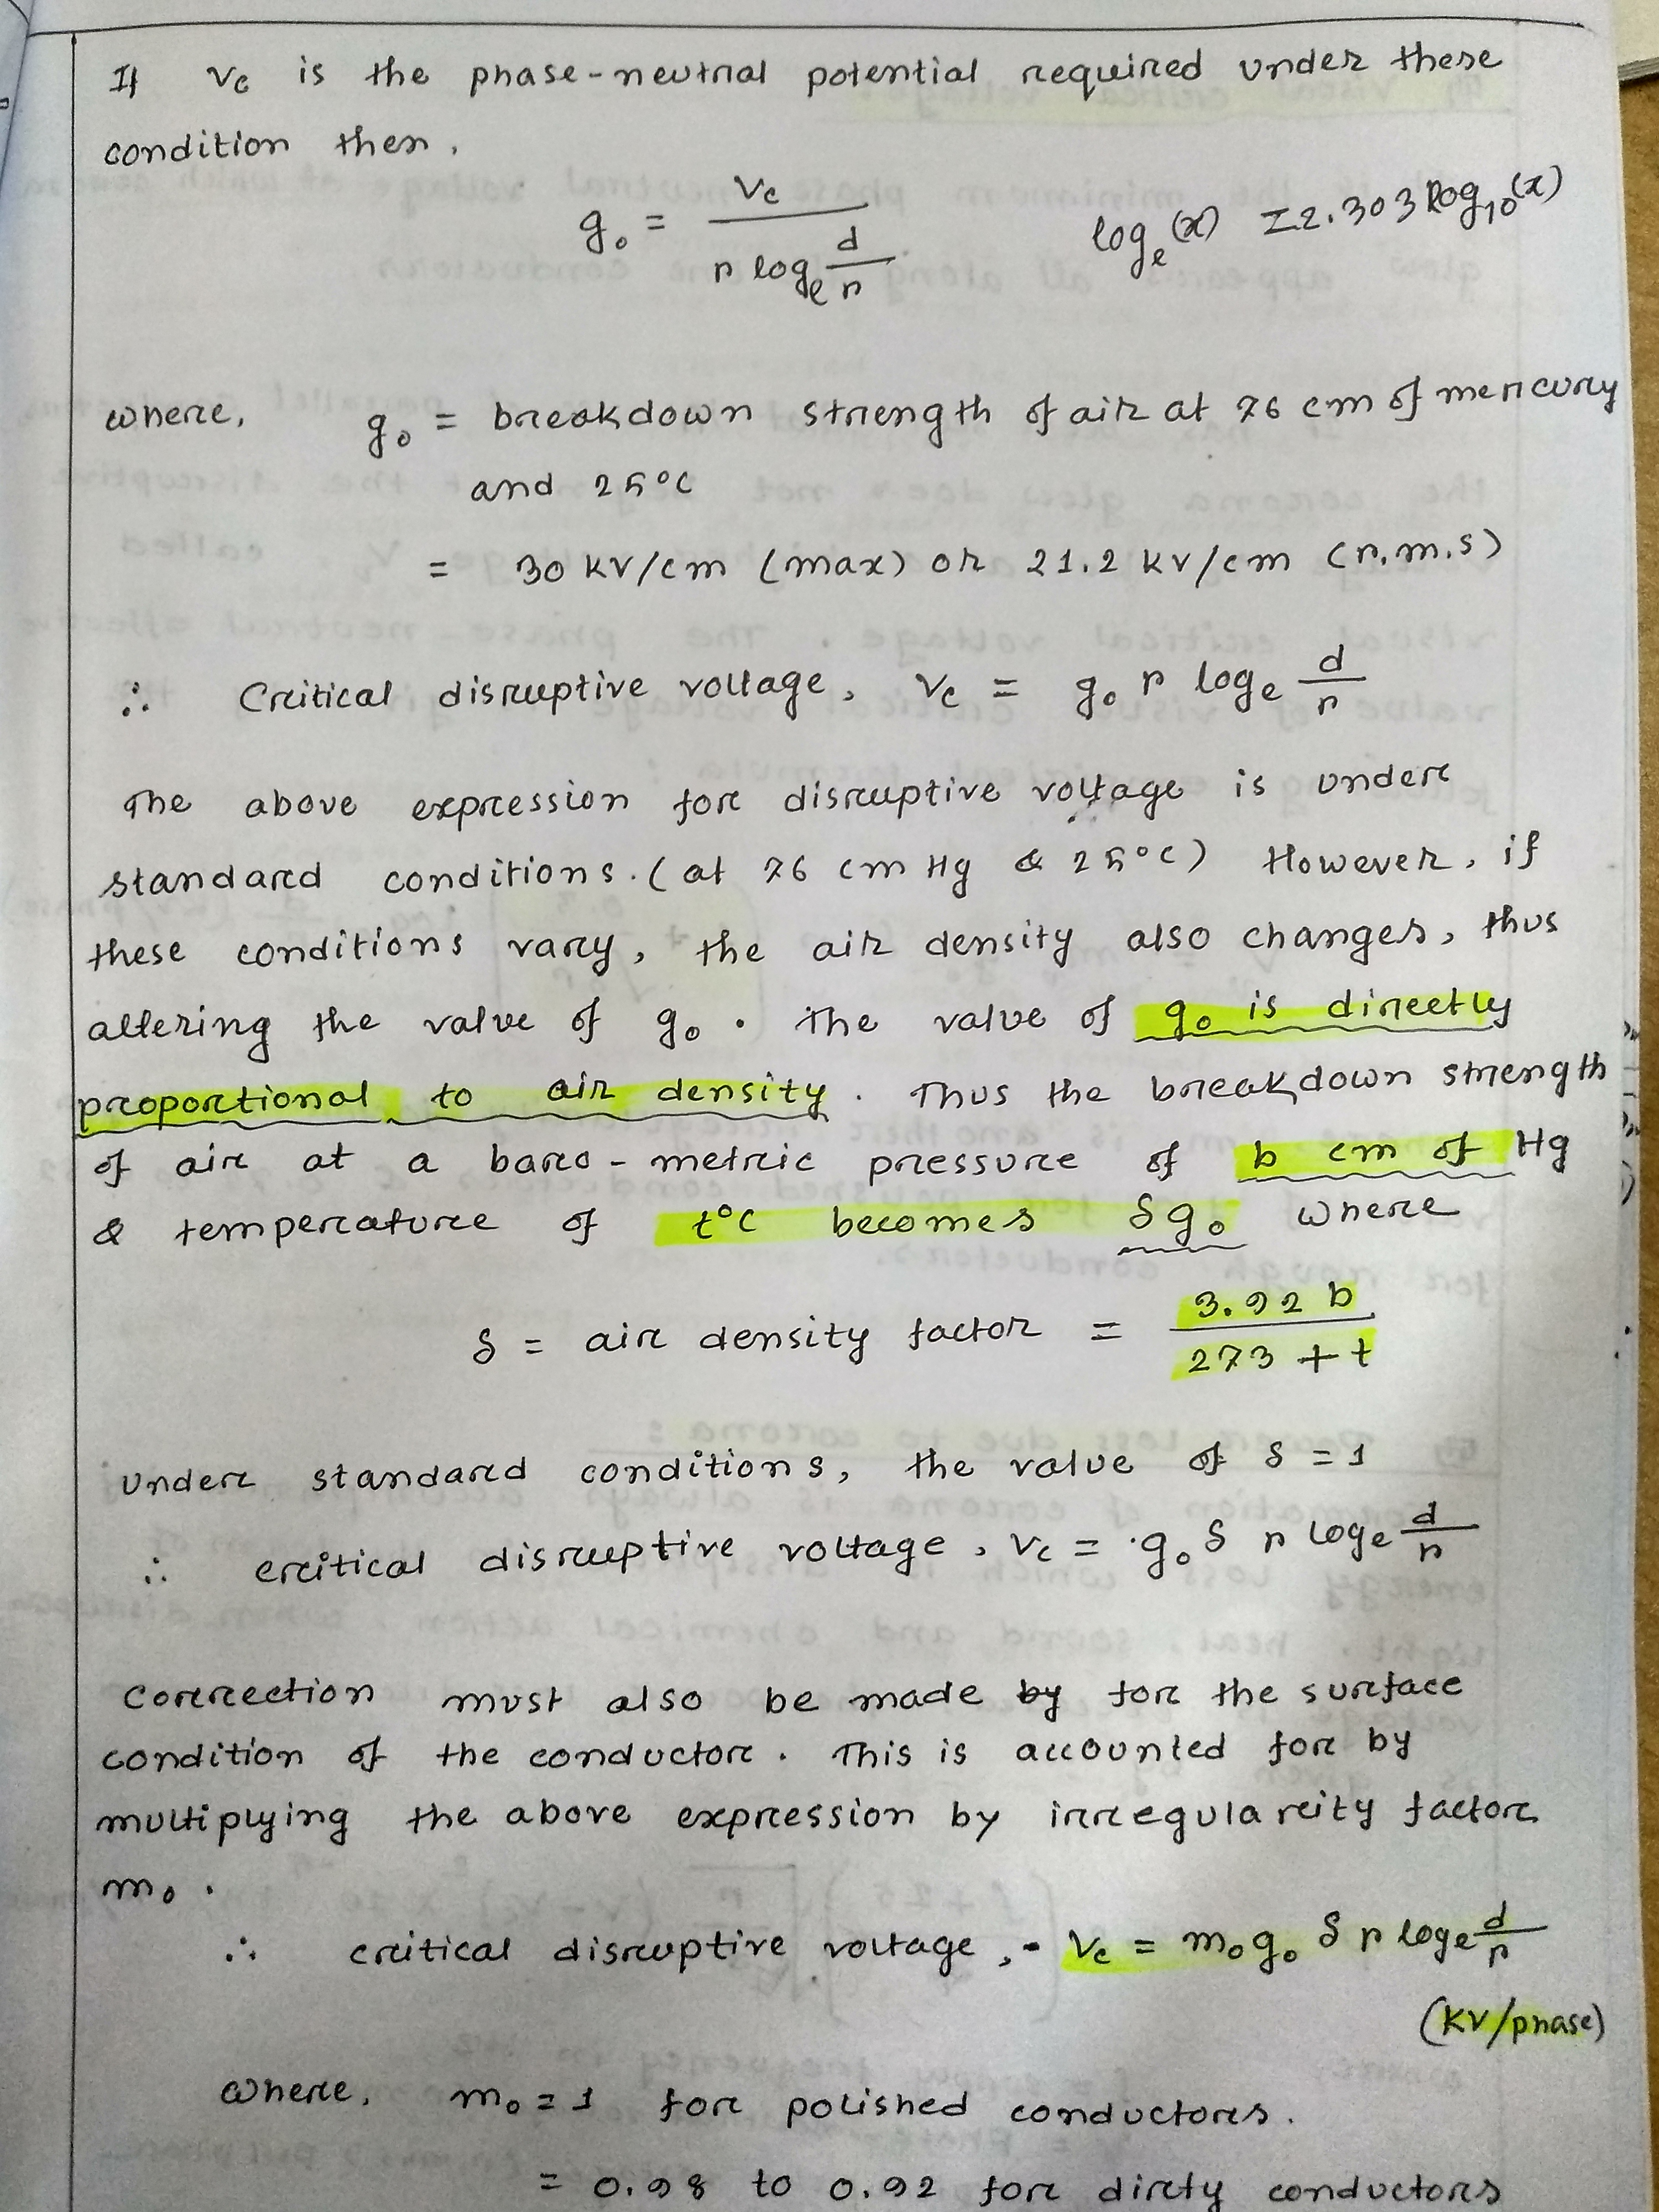 If Vc is the phase-neutral potential required under these
condition then,
g₀ = Vc / (r logₑ d/r)
logₑ(x) = 2.303 log₁₀(x)
where, g₀ = breakdown strength of air at 76 cm of mercury
and 25°C
= 30 kV/cm (max) or 21.2 kV/cm (r.m.s)
∴ Critical disruptive voltage, Vc = g₀ r logₑ d/r
The above expression for disruptive voltage is under
standard conditions. (at 76 cm Hg & 25°C) However, if
these conditions vary, the air density also changes, thus
altering the value of g₀. The value of g₀ is directly
proportional to air density. Thus the breakdown strength
of air at a baro-metric pressure of b cm of Hg
& temperature of t°C becomes δg₀ where
δ = air density factor = 3.92 b / (273 + t)
Under standard conditions, the value of δ = 1
∴ critical disruptive voltage, Vc = g₀ δ r logₑ d/r
Correction must also be made by for the surface
condition of the conductor. This is accounted for by
multiplying the above expression by irregularity factor
m₀.
∴ critical disruptive voltage, - Vc = m₀ g₀ δ r logₑ d/r
(KV/phase)
where, m₀ = 1 for polished conductors.
= 0.98 to 0.92 for dirty conductors